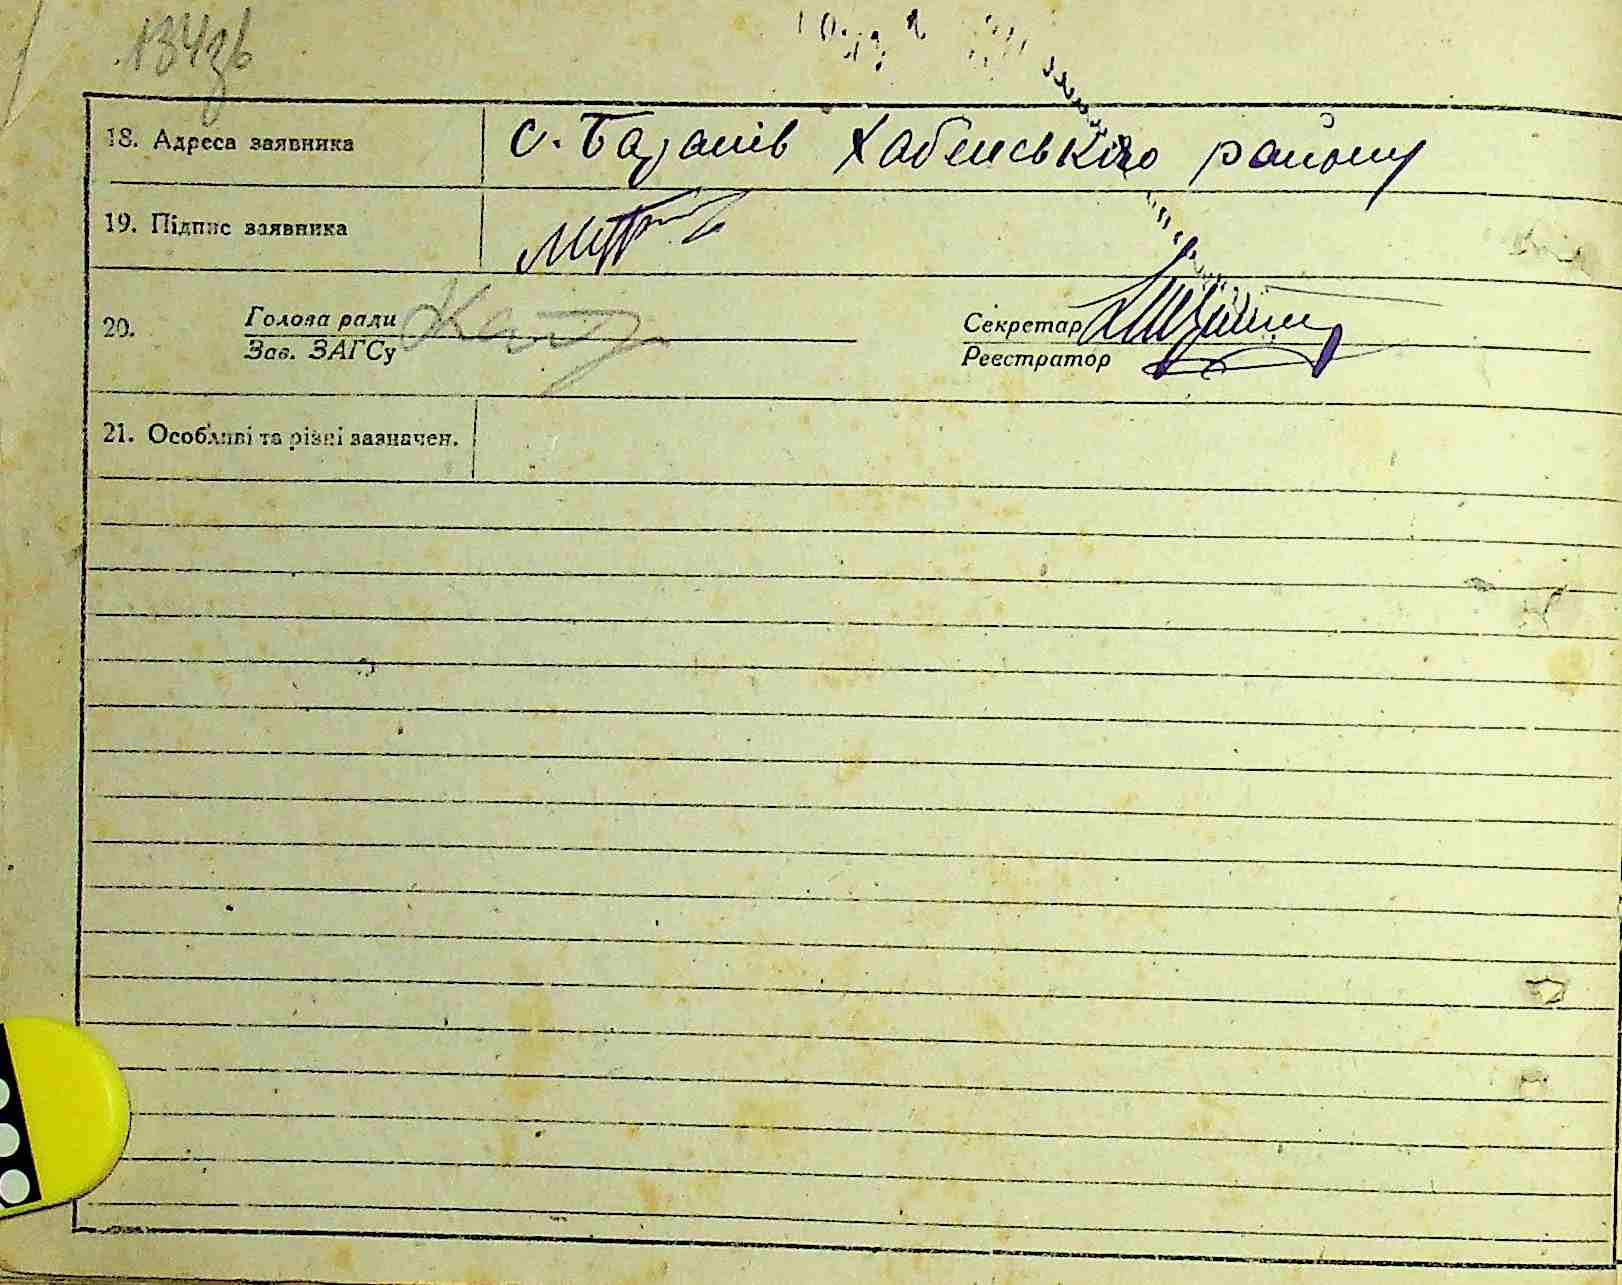 134зв
18. Адреса заявника с. Базанів Хабенського району
19. Підпис заявника
20. Голова ради Секретар
Зав. ЗАГСу Реєстратор
21. Особливі та різні зазначен.